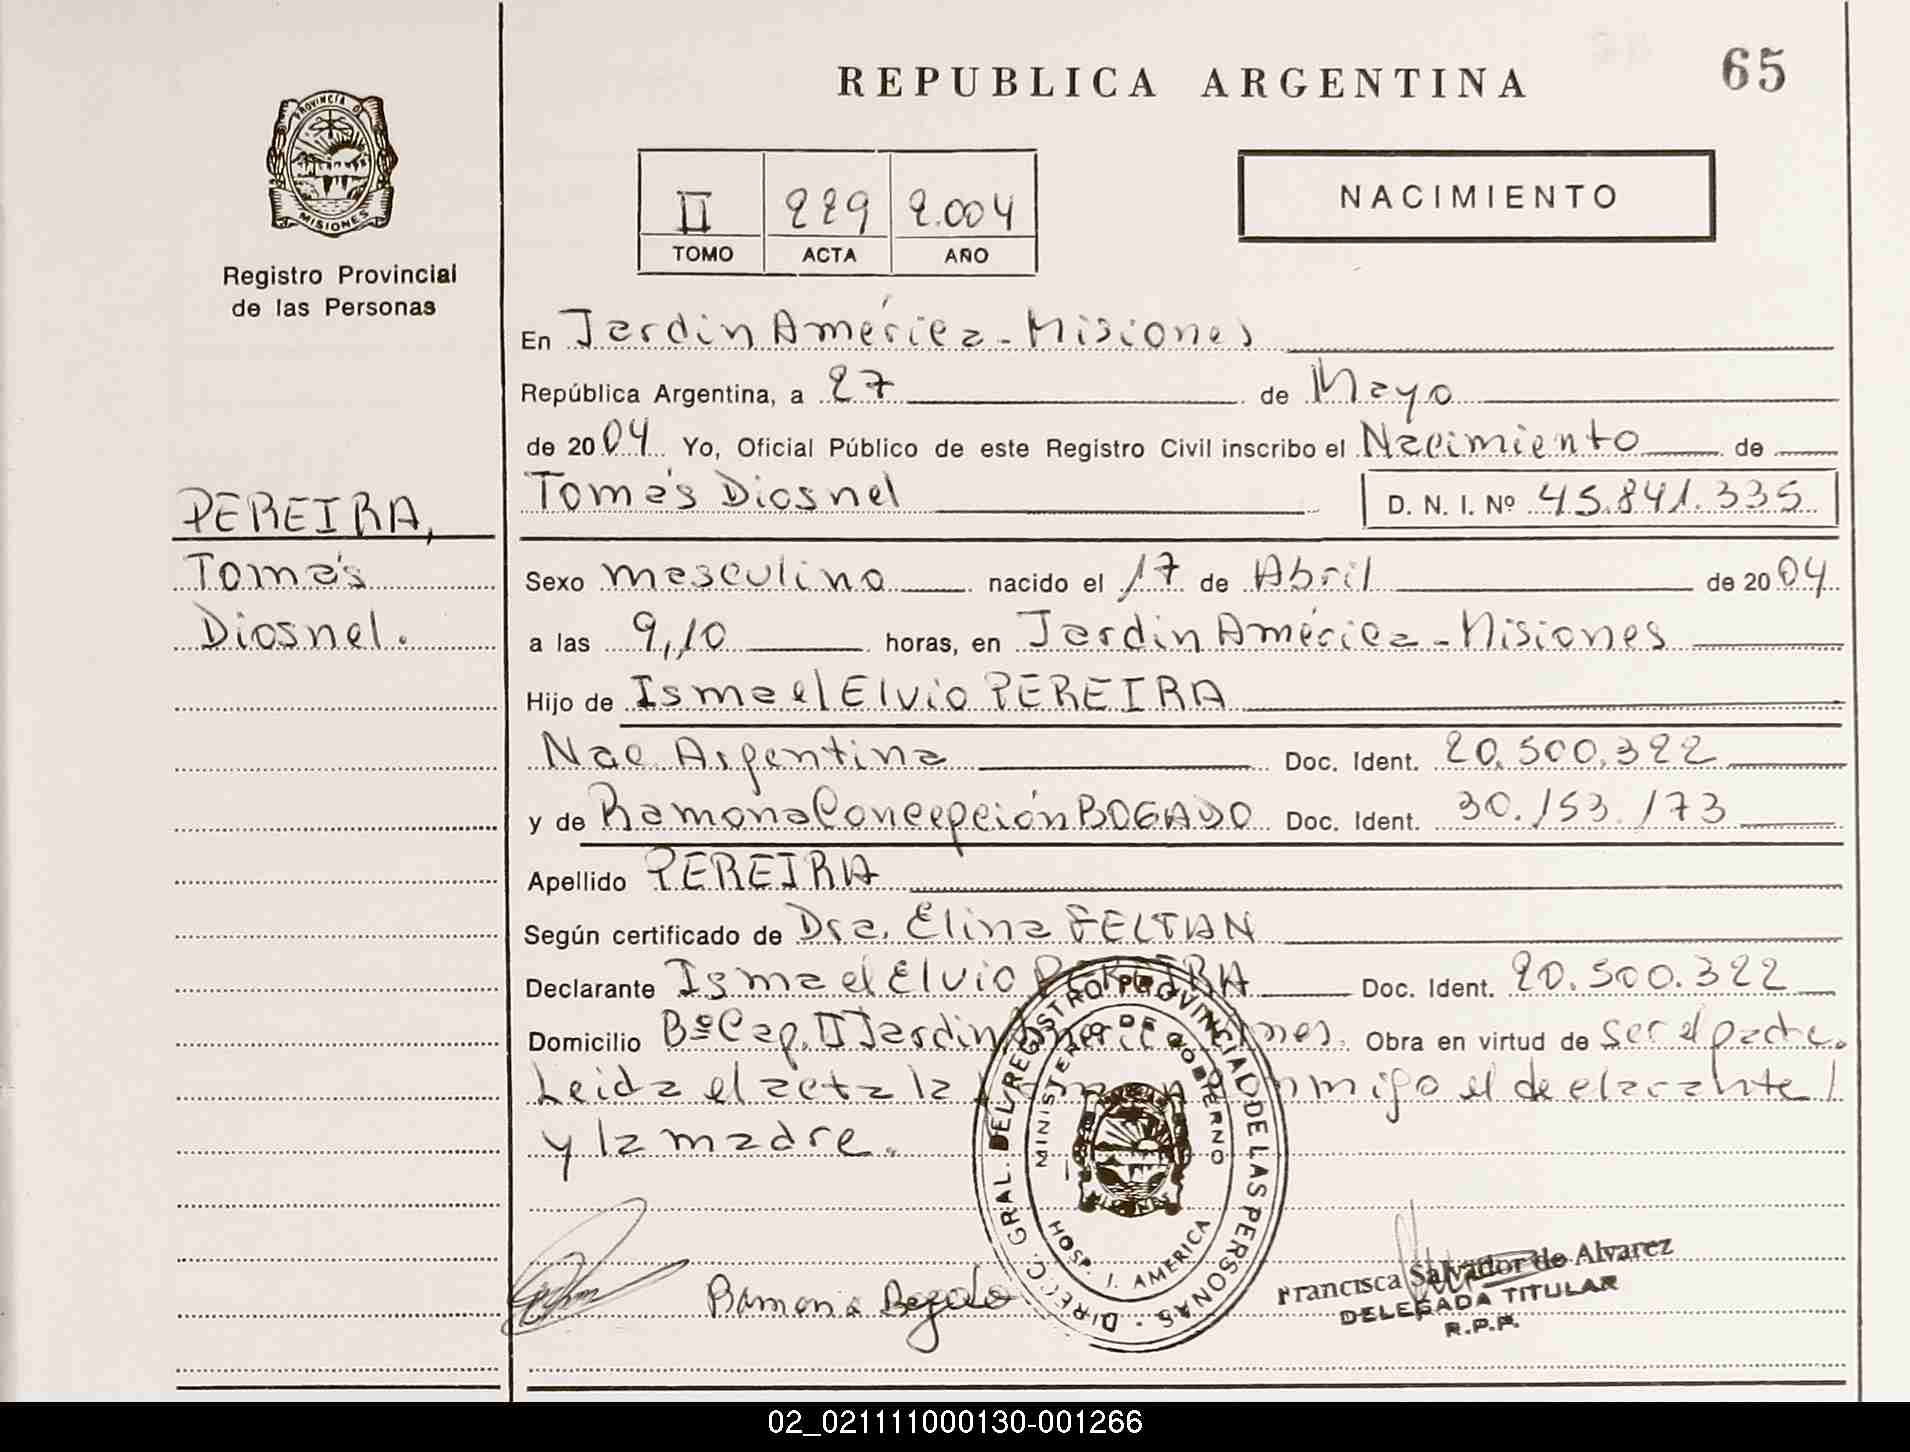 REPUBLICA ARGENTINA
65
PROVINCIA DE
MISIONES
Registro Provincial
de las Personas
II 229 2.004
TOMO ACTA AÑO
NACIMIENTO
En Jardin América - Misiones
República Argentina, a 27 de Mayo
de 2004 Yo, Oficial Público de este Registro Civil inscribo el Nacimiento de
Tomás Diosnel D. N. I. Nº 45.841.335
PEREIRA,
Tomás
Diosnel.
Sexo masculino nacido el 17 de Abril de 2004
a las 9,10 horas, en Jardin América - Misiones
Hijo de Ismael Elvio PEREIRA
Nac Argentina Doc. Ident. 20.500.322
y de Ramona Concepción BOGADO Doc. Ident. 30.153.173
Apellido PEREIRA
Según certificado de Dra. Elina FELTAN
Declarante Ismael Elvio PEREIRA Doc. Ident. 20.500.322
Domicilio Bº Cap. II Jardin Obra en virtud de ser el padre.
Leida el acta la conmigo el declarante
y la madre.
DIRECC. GRAL. DEL REGISTRO PROVINCIAL DE LAS PERSONAS
MINISTERIO DE GOBIERNO
HOSP. J. AMERICA
Ramona Bogado
Francisca Salvador de Alvarez
DELEGADA TITULAR
R.P.P.
02_021111000130-001266